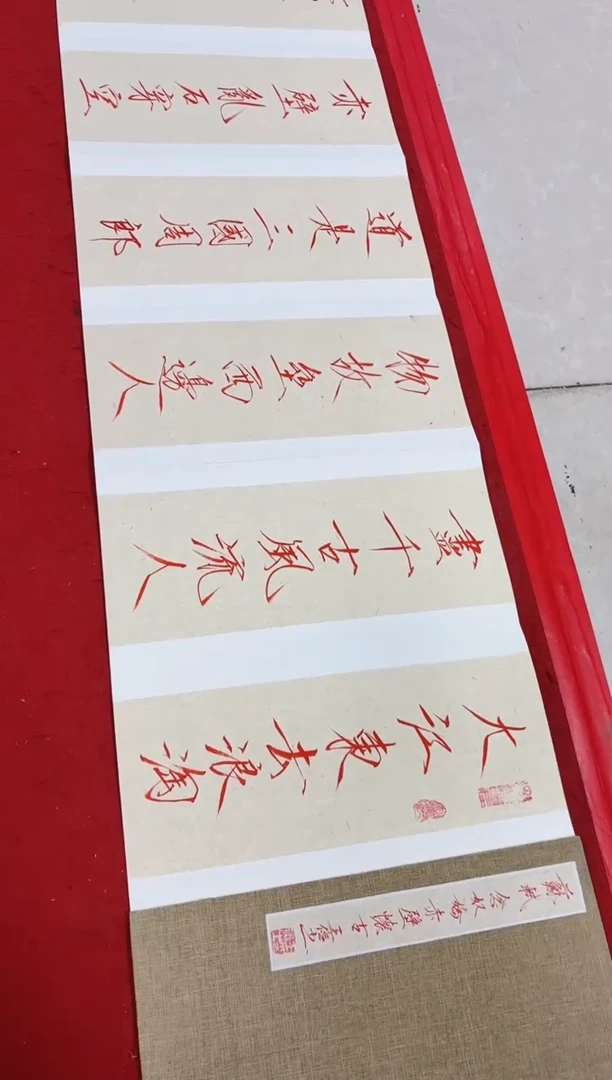 蘇軾念奴嬌赤壁懷古
大江東去浪淘
盡千古風流人
物故壘西邊人
道是三國周郎
赤壁亂石穿空